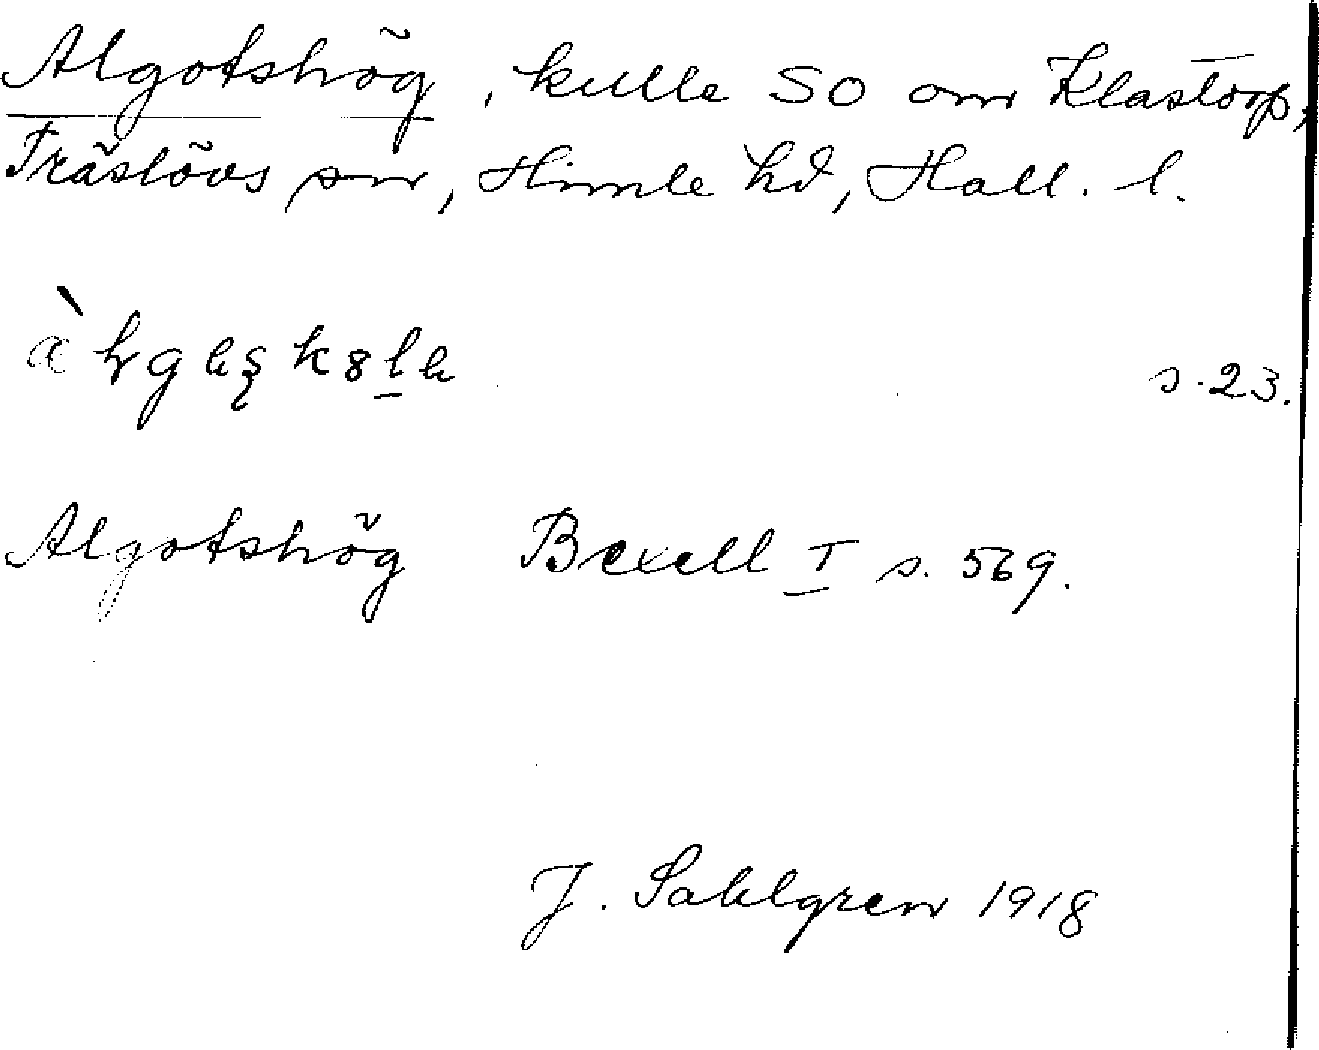 Algotshög, kulle SO om Klastorp,
Träslövs sn, Himle hd, Hall. l.
s. 23.
Algotshög Bexell I s. 569.
J. Sahlgren 1918